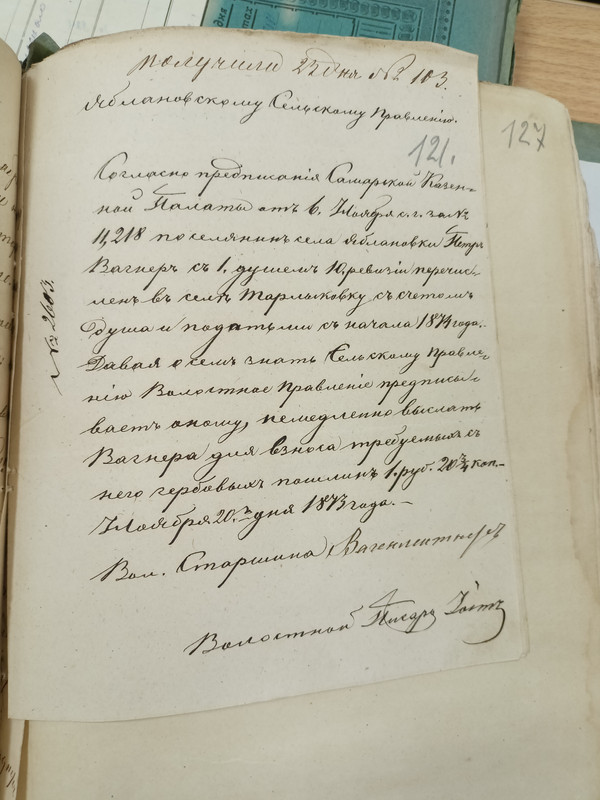 получили 22 дня № 103.
Яблановскому Сельскому Правленію.
121.
127
№ 2603.
Согласно предписанія Самарской Казен-
ной Палаты отъ 6. Ноября с. г. за №
11,218 поселянинъ села Яблановки Петръ
Вагнеръ съ 1. душею 10. ревизіи перечис-
ленъ въ сел. Тарлыковку съ счетомъ
душа и податьми съ начала 1874 года.
Давая о семъ знать Сельскому Правле-
нію Волостное Правленіе предписы-
ваетъ оному, немедленно выслать
Вагнера для взноса требуемыхъ съ
него гербовыхъ пошлинъ 1. руб. 20 3/4 коп.
Ноября 20. дня 1873 года.
Вол. Старшина
Волостной Писарь